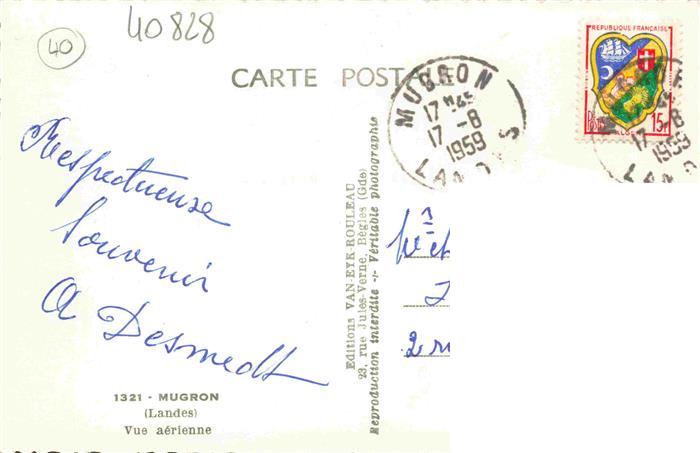 40828
40
CARTE POSTALE
REPUBLIQUE FRANÇAISE
15F
MUGRON
17 H 45
17 - 8
1959
LANDES
17 - 8
1959
Respectueuse
Souvenir
A Desmedt
1321 - MUGRON
(Landes)
Vue aérienne
Editions VAN-EYK-ROULEAU
23, rue Jules-Verne, Bègles (Gde)
Reproduction interdite -:- Véritable photographie
Mr et
2 ru